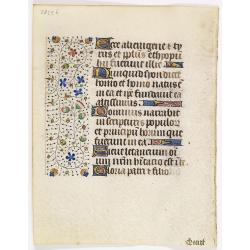 Ecce alienigene et ty
rus et pplus ethyopum
hii fuerunt illic
Nunquid syon dicet
homo et homo natus ē
in ea et ip̄e fundauit eā
altissimus
Dominus narrabit
in scripturis populorū
et principū horum que
fuerunt in ea
Sicut letancium oīm
Gloria patri et filio